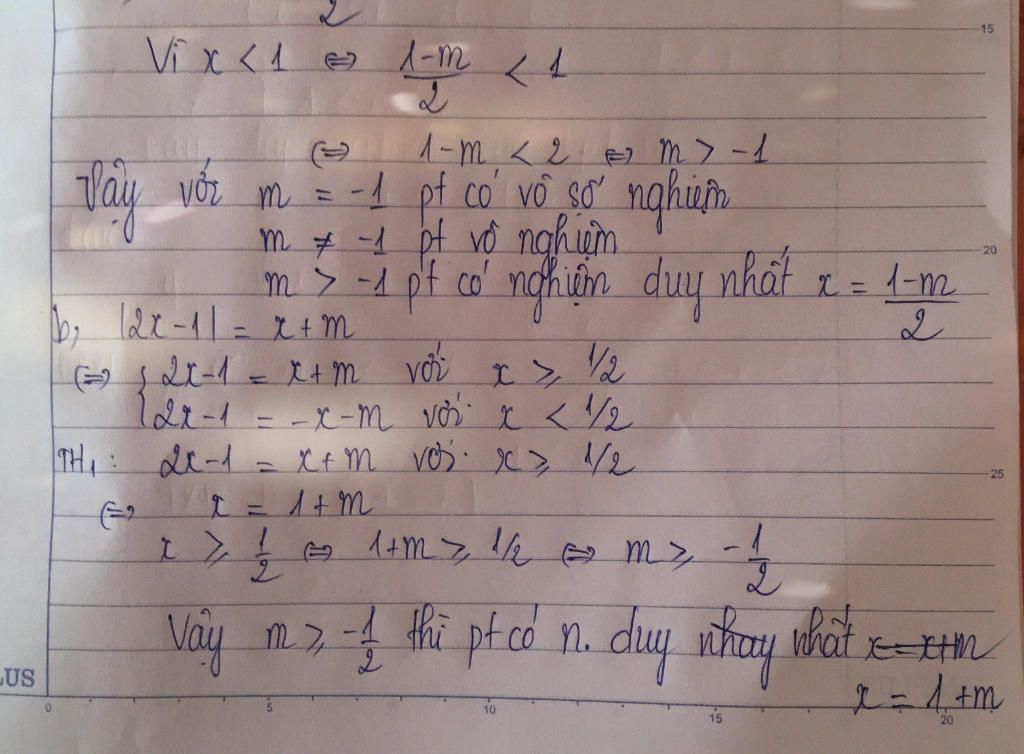 2
15
Vì x < 1 ⇔ 1-m/2 < 1
⇔ 1-m < 2 ⇔ m > -1
Vậy với m = -1 pt có vô số nghiệm
m ≠ -1 pt vô nghiệm
20
m > -1 pt có nghiệm duy nhất x = 1-m/2
b, |2x-1| = x+m
⇔ { 2x-1 = x+m với x ⩾ 1/2
{ 2x-1 = -x-m với x < 1/2
TH1: 2x-1 = x+m với x ⩾ 1/2
25
⇔ x = 1+m
x ⩾ 1/2 ⇔ 1+m ⩾ 1/2 ⇔ m ⩾ -1/2
Vậy m ⩾ -1/2 thì pt có n. duy nhay nhất x=x+m
x = 1+m
LUS
0 5 10 15 20